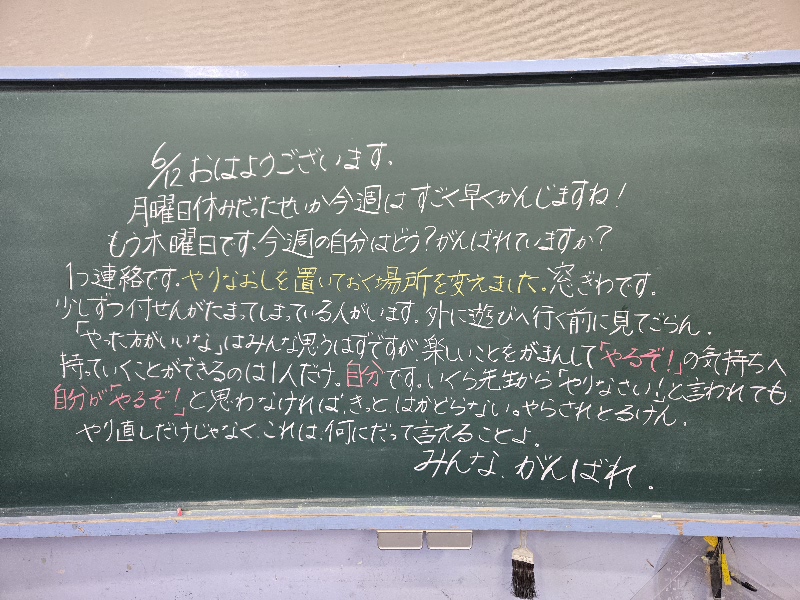 6/12 おはようございます。
月曜日休みだったせいか今週はすごく早くかんじますね！
もう木曜日です。今週の自分はどう？がんばれていますか？
1つ連絡です。やりなおしを置いておく場所を変えました。窓ぎわです。
少しずつ付せんがたまってしまっている人がいます。外に遊びへ行く前に見てごらん。
「やった方がいいな」はみんな思うはずですが、楽しいことをがまんして「やるぞ！」の気持ちへ
持っていくことができるのは1人だけ。自分です。いくら先生から「やりなさい！」と言われても、
自分が「やるぞ！」と思わなければ、きっとはかどらない。やらされとるけん。
やり直しだけじゃなく、これは、何にだって言えることよ。
みんな、がんばれ。